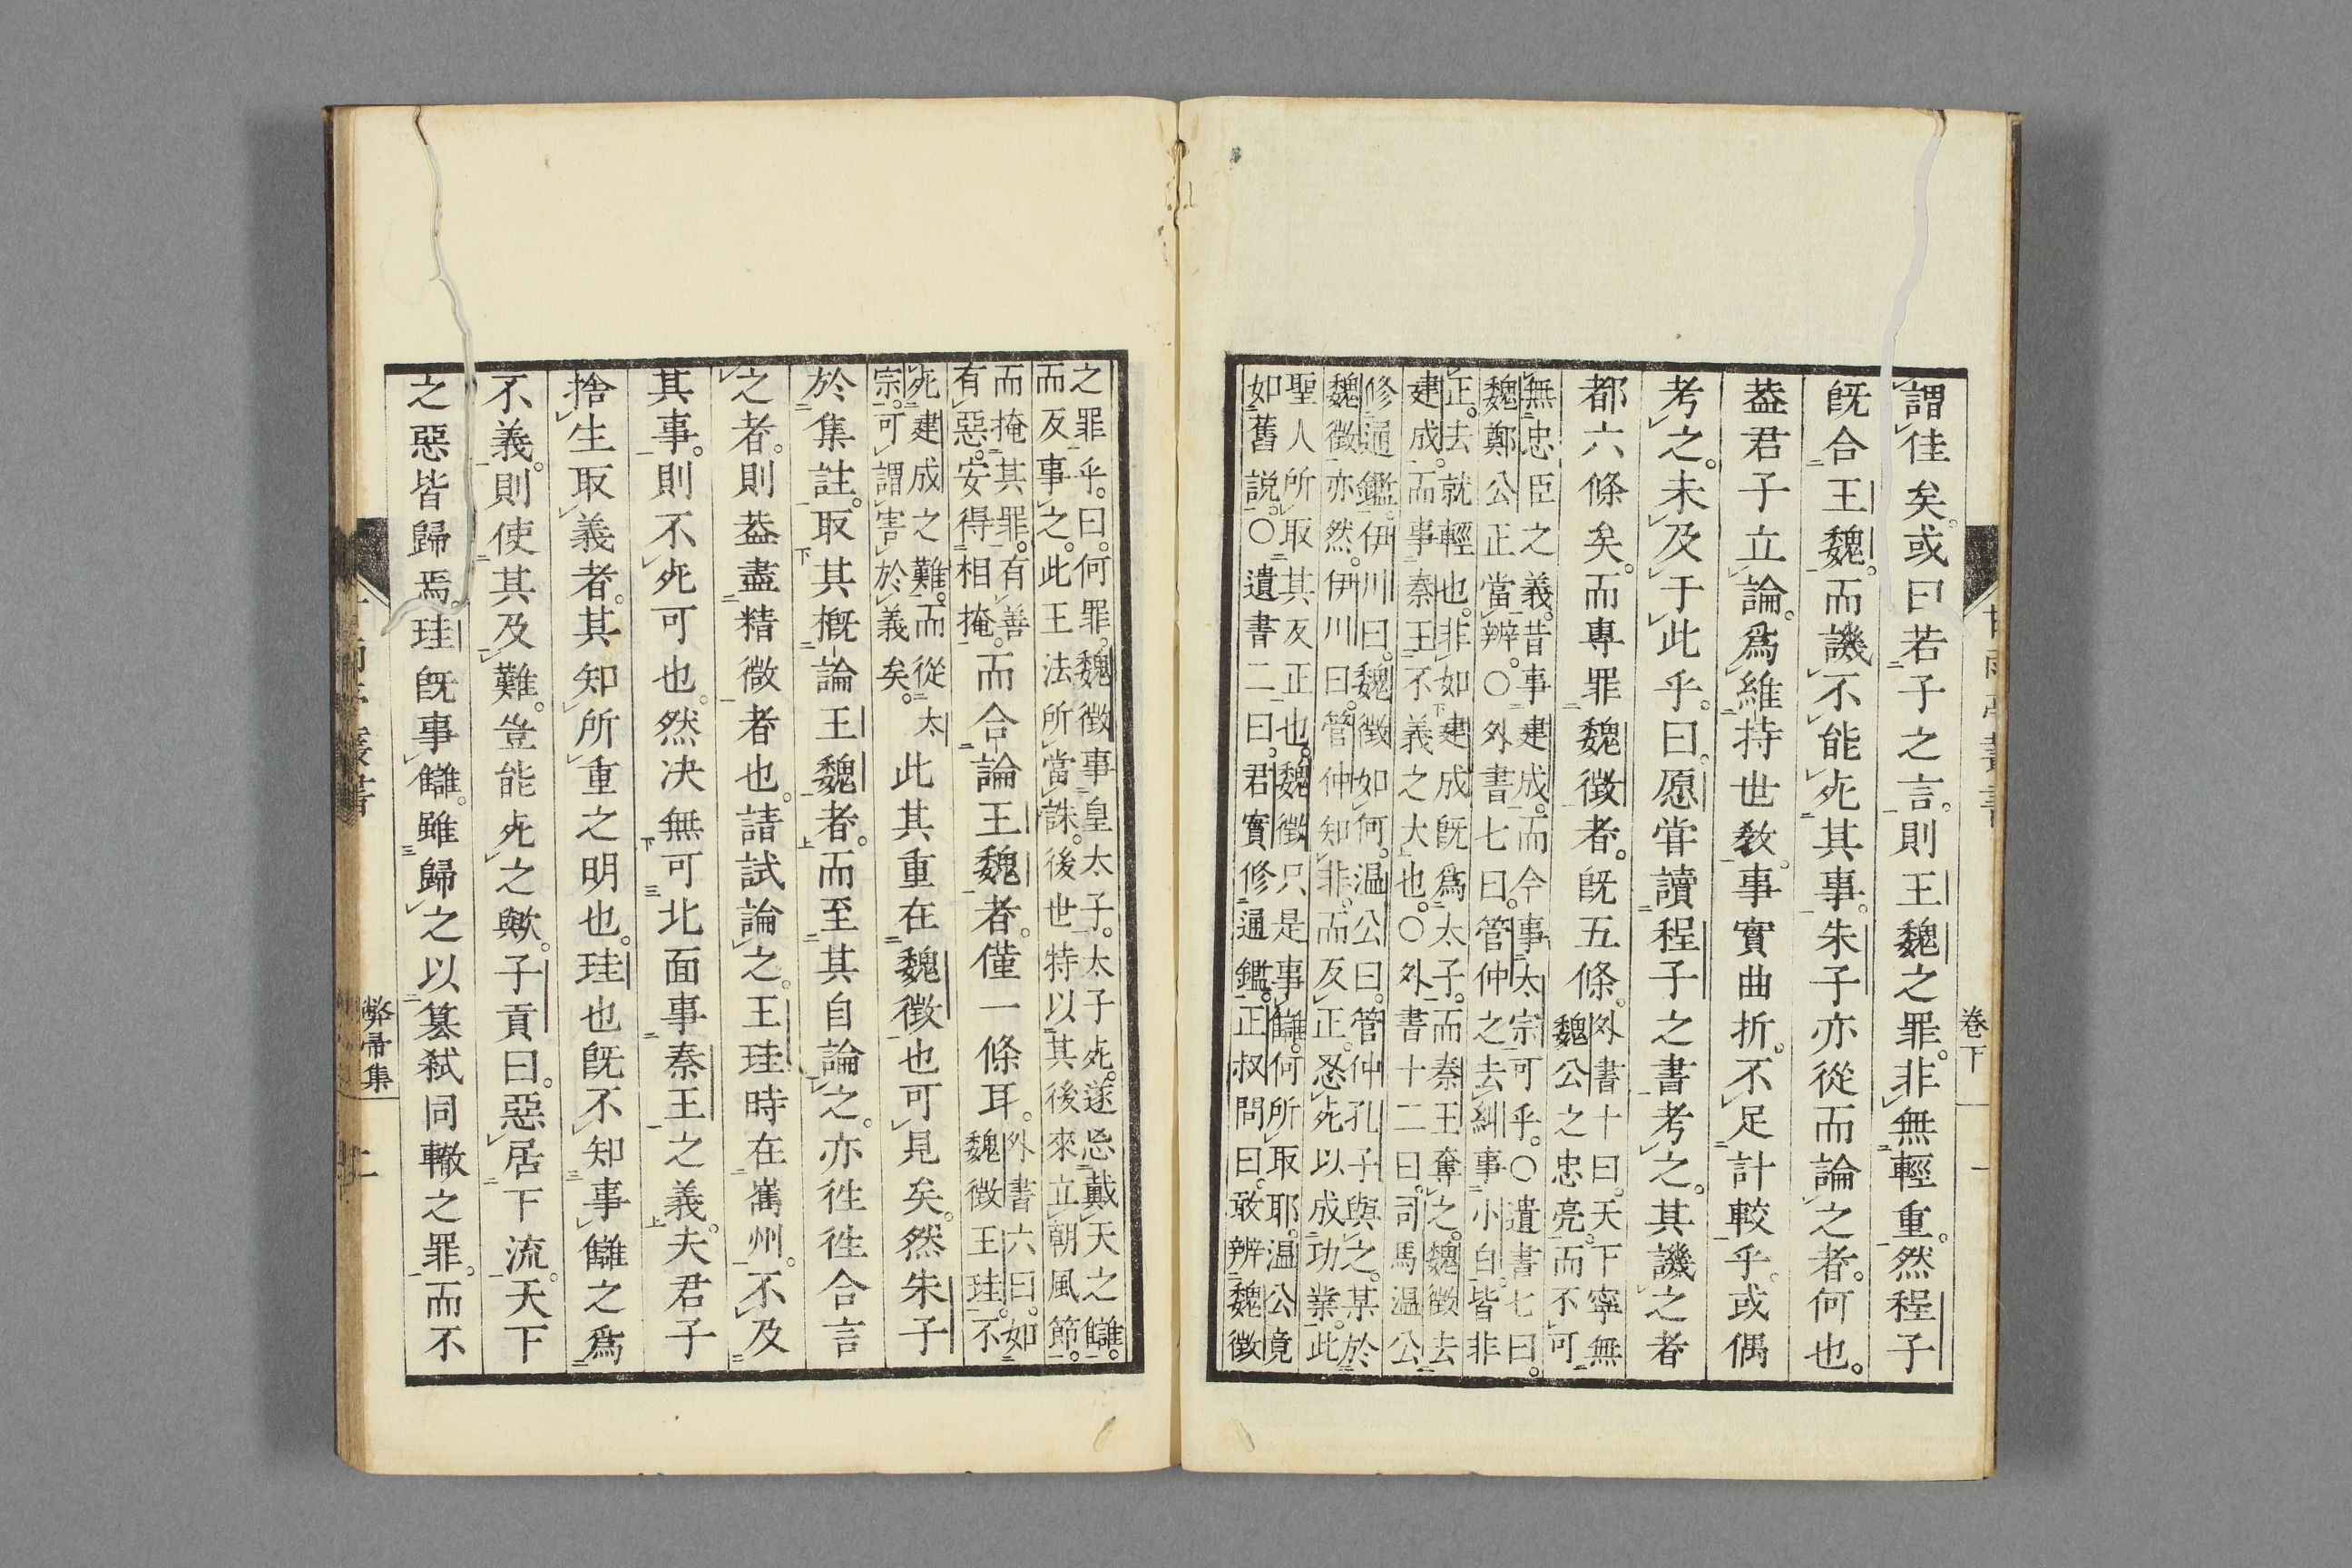 謂佳矣。或曰若子之言。則王魏之罪。非無輕重。然程子
旣合王魏。而譏不能死其事。朱子亦從而論之者。何也。
葢君子立論。爲維持世敎。事實曲折。不足計較乎。或偶
考之。未及于此乎。曰。愿甞讀程子之書考之。其譏之者
都六條矣。而專罪魏徵者。旣五條。
外書十曰。天下寧無
魏公之忠亮。而不可
無忠臣之義。昔事建成。而今事太宗可乎。○遺書七曰。
魏鄭公正當辨。○外書七曰。管仲之去糾事小白。皆非
正。去就輕也。非如建成旣爲太子。而秦王奪之。魏徵去
建成。而事秦王不義之大也。○外書十二曰。司馬温公
修通鑑。伊川曰。魏徵如何。温公曰。管仲孔子與之。某於
魏徵亦然。伊川曰。管仲知非。而反正。忍死以成功業。此
聖人所取其反正也。魏徵只是事讎。何所取耶。温公竟
如舊説。○遺書二曰。君實修通鑑。正叔問曰。敢辨魏徵
之罪乎。曰。何罪。魏徵事皇太子。太子死。遂忘戴天之讎。
而反事之。此王法所當誅。後世特以其後來立朝風節。
而掩其罪。有善
有惡。安得相掩。
而合論王魏者。僅一條耳。
外書六曰。如
魏徵王珪。不
死建成之難。而從太
宗。可謂害於義矣。
此其重在魏徵也可見矣。然朱子
於集註。取其概論王魏者。而至其自論之。亦徃徃合言
之者。則葢盡精微者也。請試論之。王珪時在嶲州。不及
其事。則不死可也。然决無可北面事秦王之義。夫君子
捨生取義者。其知所重之明也。珪也旣不知事讎之爲
不義。則使其及難。豈能死之歟。子貢曰。惡居下流。天下
之惡皆歸焉。珪旣事讎。雖歸之以簒弑同轍之罪。而不
卷下
弊帚集